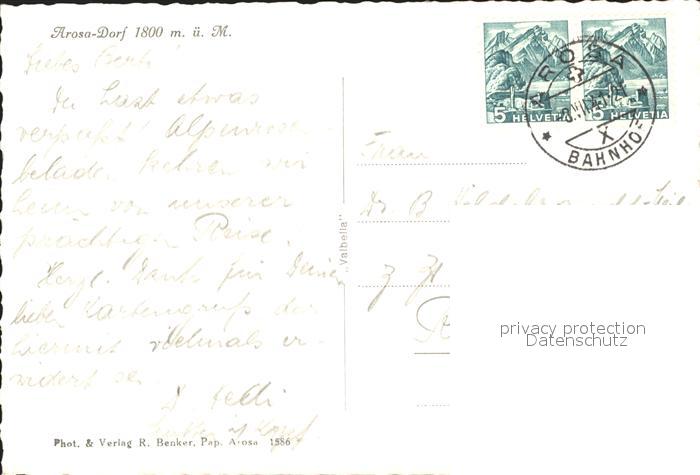 Arosa-Dorf 1800 m. ü. M.
Liebes
Du hast etwas
verpasst! Alpenrosen
beladen kehren wir
heim von unserer
prächtigen Reise.
Herzl. Dank für Deinen
lieben Kartengruß der
hiermit vielmals er-
widert sei.
5 HELVETIA
5 HELVETIA
AROSA
X
BAHNHOF
„Valbella"
Frau
Dr. B
z. Zt.
privacy protection
Datenschutz
Phot. & Verlag R. Benker, Pap. Arosa 1586